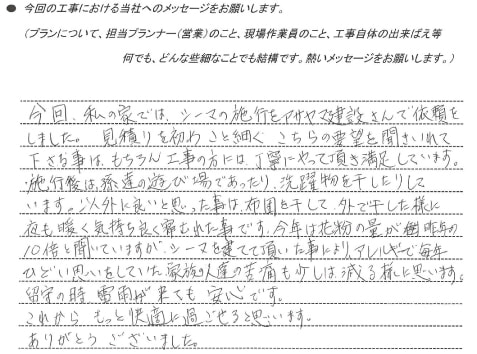 ● 今回の工事における当社へのメッセージをお願いします。
(プランについて、担当プランナー(営業)のこと、現場作業員のこと、工事自体の出来ばえ等
何でも、どんな些細なことでも結構です。熱いメッセージをお願いします。)
今回、私の家では、シーマの施行をアサヤマ建設さんで依頼を
しました。見積りを初め こと細く こちらの要望を聞きいれて
下さる事は、もちろん 工事の方には、丁寧にやって頂き満足しています。
施行後は、孫達の遊び場であったり、洗濯物を干したりして
います。以外に良いと思った事は、布団を干して、外で干した様に
夜も暖く気持ち良く寝られた事です。今年は花粉の量が例昨年の
10倍と聞いていますが、シーマを建てて頂いた事により、アレルギーで毎年
ひどい思いをしていた家族4人達の苦痛も少しは減る様に思います。
留守の時、雷雨が来ても 安心です。
これから もっと快適に過ごせると思います。
ありがとう ございました。